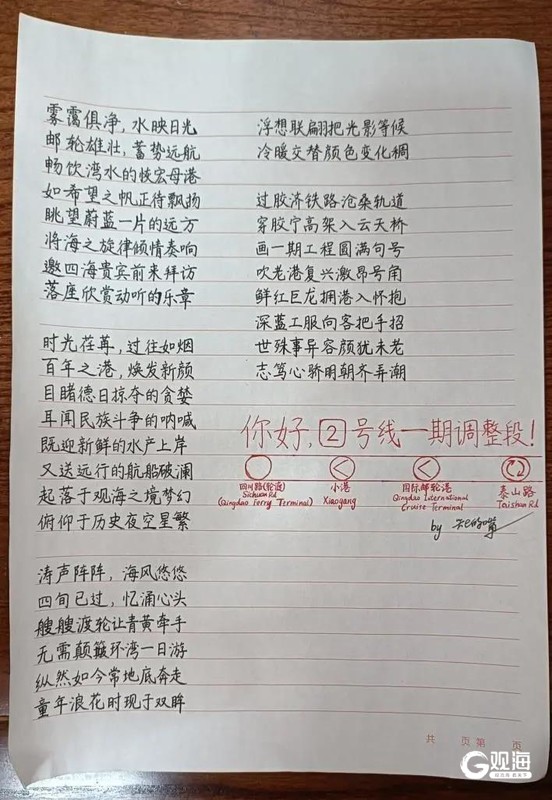 雾霭俱净，水映日光
邮轮雄壮，蓄势远航
畅饮湾水的恢宏母港
如希望之帆正待飘扬
眺望蔚蓝一片的远方
将海之旋律倾情奏响
邀四海贵宾前来拜访
落座欣赏动听的乐章
时光荏苒，过往如烟
百年之港，焕发新颜
目睹德日掠夺的贪婪
耳闻民族斗争的呐喊
既迎新鲜的水产上岸
又送远行的航船破澜
起落于观海之境梦幻
俯仰于历史夜空星繁
涛声阵阵，海风悠悠
四旬已过，忆涌心头
艘艘渡轮让青黄牵手
无需颠簸环湾一日游
纵然如今常地底奔走
童年浪花时现于双眸
浮想联翩把光影等候
冷暖交替颜色变化稠
过胶济铁路沧桑轨道
穿胶宁高架入云天桥
画一期工程圆满句号
吹老港复兴激昂号角
鲜红巨龙拥港入怀抱
深蓝工服向客把手招
世殊事异容颜犹未老
志笃心骄明朝齐弄潮
你好，2号线一期调整段！
四川路(轮渡)
Sichuan Rd
(Qingdao Ferry Terminal)
小港
Xiaogang
国际邮轮港
Qingdao International
Cruise Terminal
泰山路
Taishan Rd
by
共 页 第 页
观海